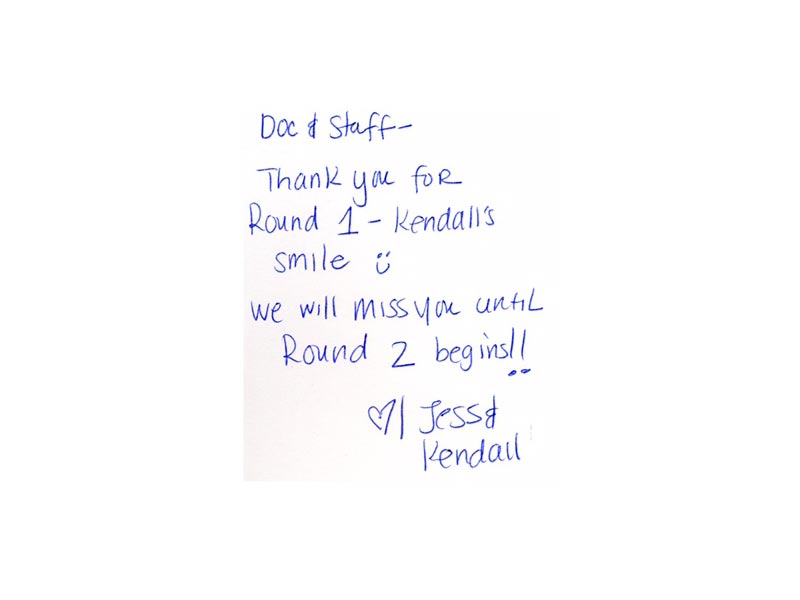 Doc & Staff-
Thank you for
Round 1 - Kendall's
smile :)
we will miss you until
Round 2 begins!!
♡, Jess &
Kendall